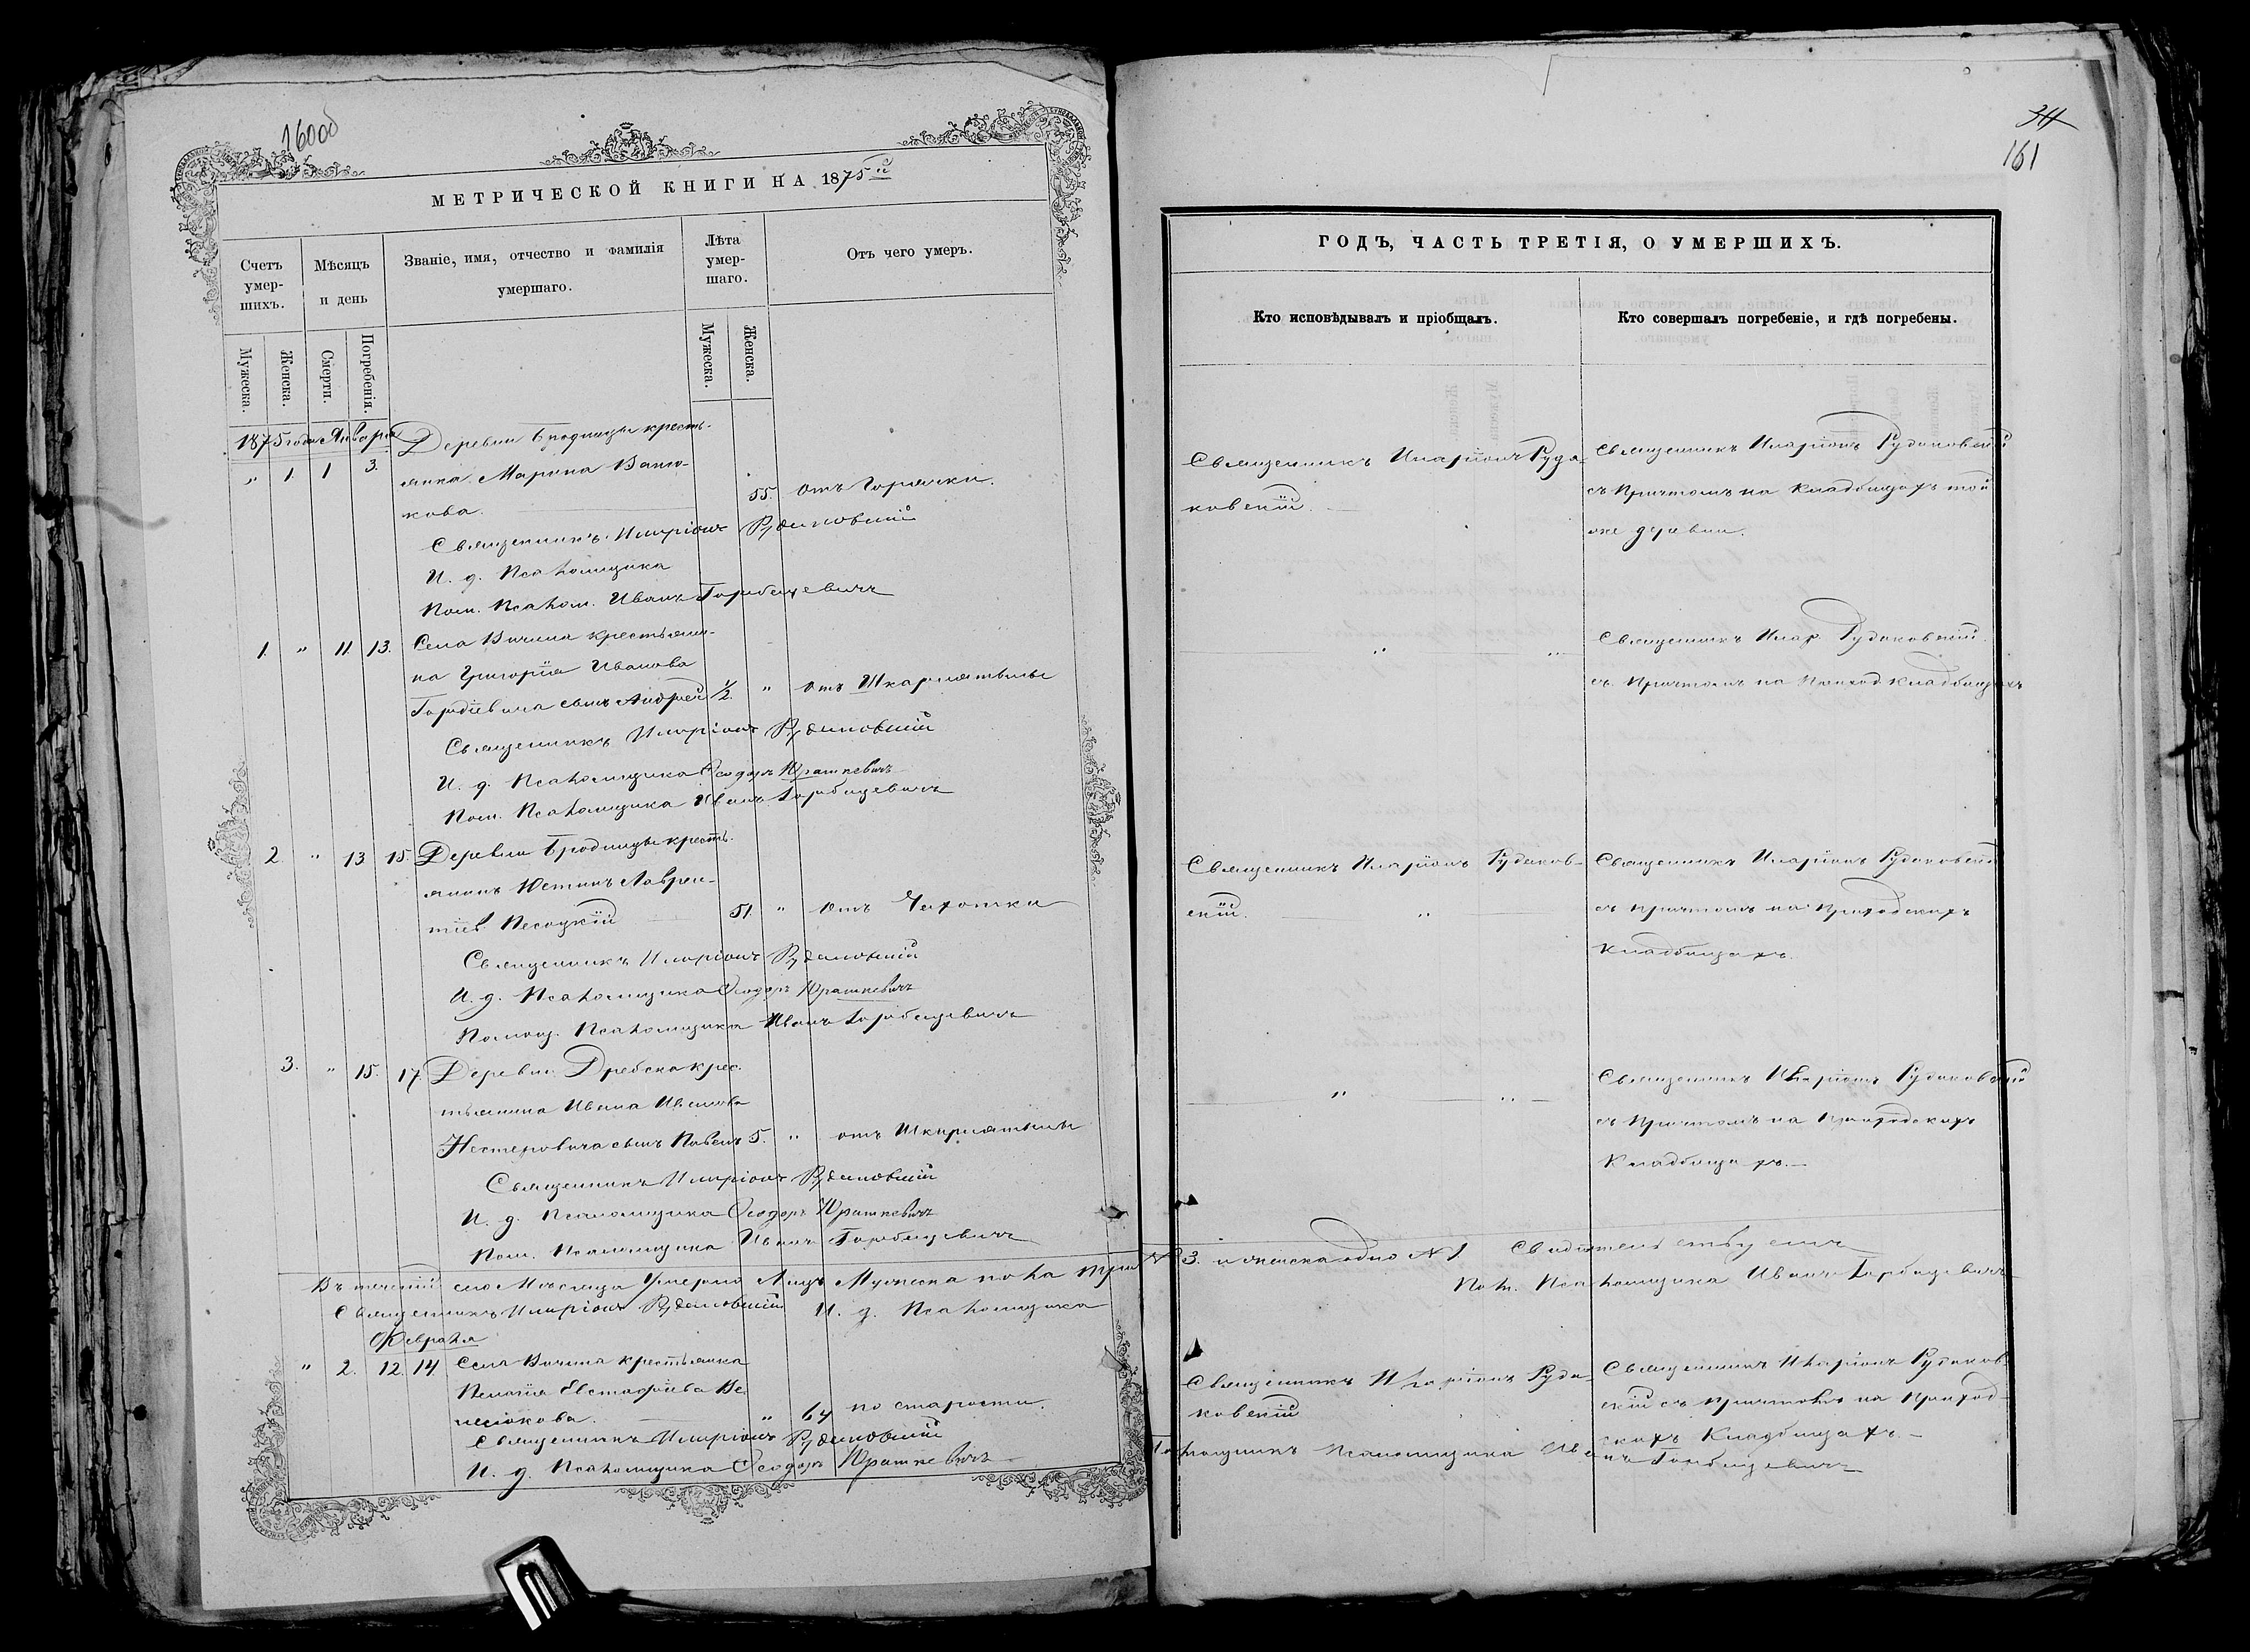 160об
МЕТРИЧЕСКОЙ КНИГИ НА 1875ый
Счетъ умер-шихъ.
Мѣсяцъ и день
Званіе, имя, отчество и фамилія умершаго.
Лѣта умер-шаго.
Отъ чего умеръ.
Мужеска.
Женска.
Смерти.
Погребенія.
Мужеска.
Женска.
1875 года Января
Деревни Бродницы кресть-
" 1. 1 3. янка Марина
кова. 55. Отъ Горячки.
Священникъ Иларіонъ Рудаковскій
И. д. Псаломщика
Пом. Псалом. Иванъ Горбацевичъ
1. " 11. 13. Села Вичина крестьяни-
на Григорія Иванова
Гордіевича сынъ Андрей 1/2 " Отъ Шкарлятины
Священникъ Иларіонъ Рудаковскій
И. д. Псаломщика Ѳеодоръ Юрашкевичъ
Пом. Псаломщика Иванъ Горбацевичъ
2. " 13 15. Деревни Бродницы кресть-
янинъ Юстинъ Лаврен-
тіев Песоцкій 51. " Отъ Чахотки
Священникъ Иларіонъ Рудаковскій
И. д. Псаломщика Ѳеодоръ Юрашкевичъ
Помощ. Псаломщика Иванъ Горбацевичъ
3. " 15. 17. Деревни Дребска крес-
тьянина Ивана Иванова
Нестеровича сынъ Павелъ 5. " отъ Шкарлятины
Священникъ Иларіонъ Рудаковскій
И. д. Псаломщика Ѳеодоръ Юрашкевичъ
Пом. Псаломщика Иванъ Горбацевичъ
Въ теченіи сего Мѣсяца Умерло Лицъ Мужеска пола три №
Священникъ Иларіонъ Рудаковскій И. д. Псаломщика
Февраля
" 2. 12. 14. Села Вичина крестьянка
Пелагія Евстафіева Ве-
" 64 по старости.
Священникъ Иларіонъ Рудаковскій
И. д. Псаломщика Ѳеодоръ Юрашкевичъ
311
161
ГОДЪ, ЧАСТЬ ТРЕТІЯ, О УМЕРШИХЪ.
Кто исповѣдывалъ и пріобщалъ.
Кто совершалъ погребеніе, и гдѣ погребены.
Священникъ Иларіонъ Руда- Священникъ Иларіонъ Рудаковскій
ковскій. съ Причтомъ на Кладбищахъ той
же деревни.
" " Священникъ Илар. Рудаковскій.
съ Причтомъ на Приход кладбищахъ
Священникъ Иларіонъ Рудаков- Священникъ Иларіонъ Рудаковскій
скій. " съ причтомъ на Приходскихъ
Кладбищахъ.
" " Священникъ Иларіонъ Рудаковскій
съ Причтомъ на Приходскихъ
Кладбищахъ.
3. и женска одно № 1. Свидѣтельствуемъ
Пом. Псаломщика Иванъ Горбацевичъ
Священникъ Иларіонъ Руда- Священникъ Иларіонъ Рудаков-
ковскій скій съ причтомъ на Приход-
скихъ Кладбищахъ.
Помощникъ Псаломщика Иванъ Горбацевичъ